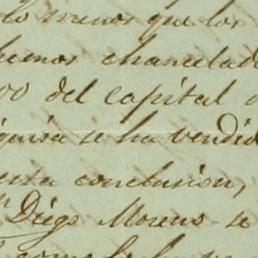 lo menos que los
hemos chancelad
00 del capital
se ha vendid
esta conclusion,
Diego Moreno se
como